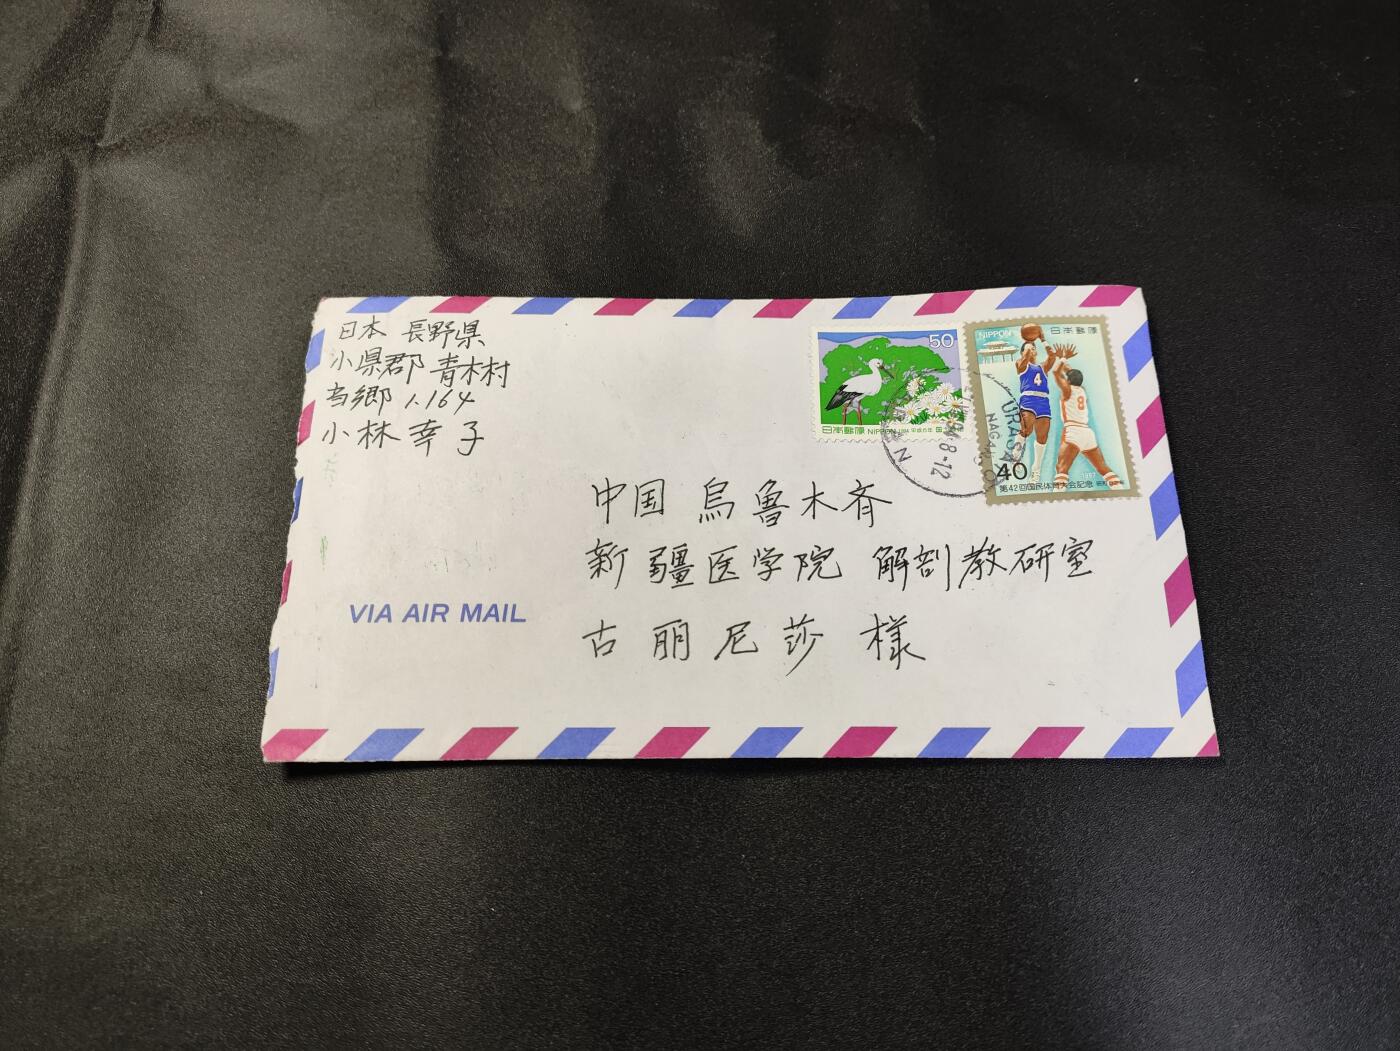 日本 長野県
小県郡 青木村
当郷 1.164
小林幸子
50
日本郵便 NIPPON 1994 平成六年
NIPPON 日本郵便
4
8
40
1987
第42回国民体育大会記念
URASA
NAGANO
8.12
中国 烏魯木斉
新疆医学院 解剖教研室
古丽尼莎 様
VIA AIR MAIL